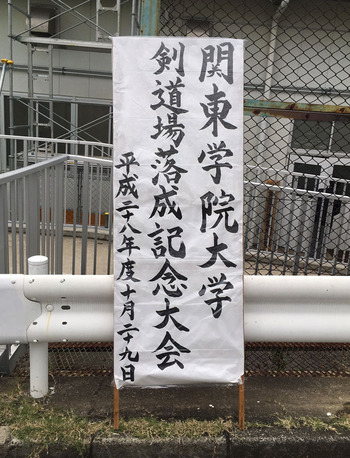 関東学院大学
剣道場落成記念大会
平成二十八年度十月二十九日